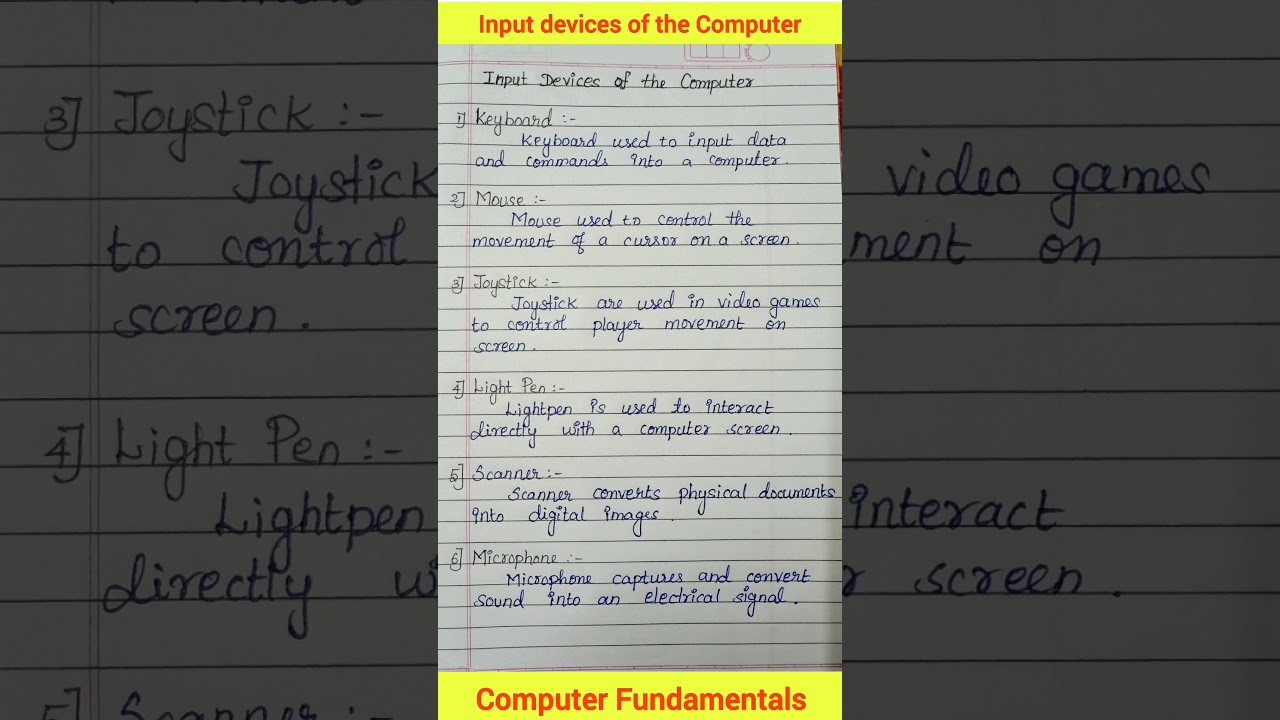 Input devices of the Computer
Input Devices of the Computer
1] Keyboard :-
Keyboard used to input data
and commands into a computer.
2] Mouse :-
Mouse used to control the
movement of a cursor on a screen.
3] Joystick :-
Joystick are used in video games
to control player movement on
screen.
4] Light Pen :-
Lightpen is used to interact
directly with a computer screen.
5] Scanner :-
Scanner converts physical documents
into digital images.
6] Microphone :-
Microphone captures and convert
sound into an electrical signal.
Computer Fundamentals
3] Joystick :-
Joystick
to control
screen.
4] Light Pen :-
Lightpen
directly
5] Scanner :-
video games
ment on
interact
screen.